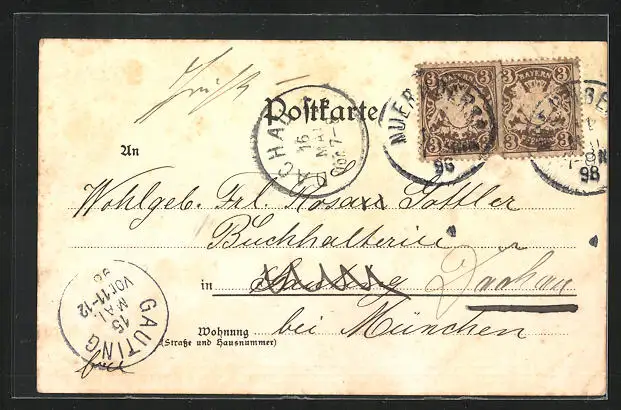 Postkarte
3 BAYERN 3 3 BAYERN 3
NUERNBERG
98
98
DACHAU
16
MAI
Vor. 7-8
An
Wohlgeb. Frl. Rosa Sattler
Buchhalterin
in Gauting Dachau
bei München
Wohnung
(Straße und Hausnummer)
GAUTING
15
MAI
VOR 11-12
98